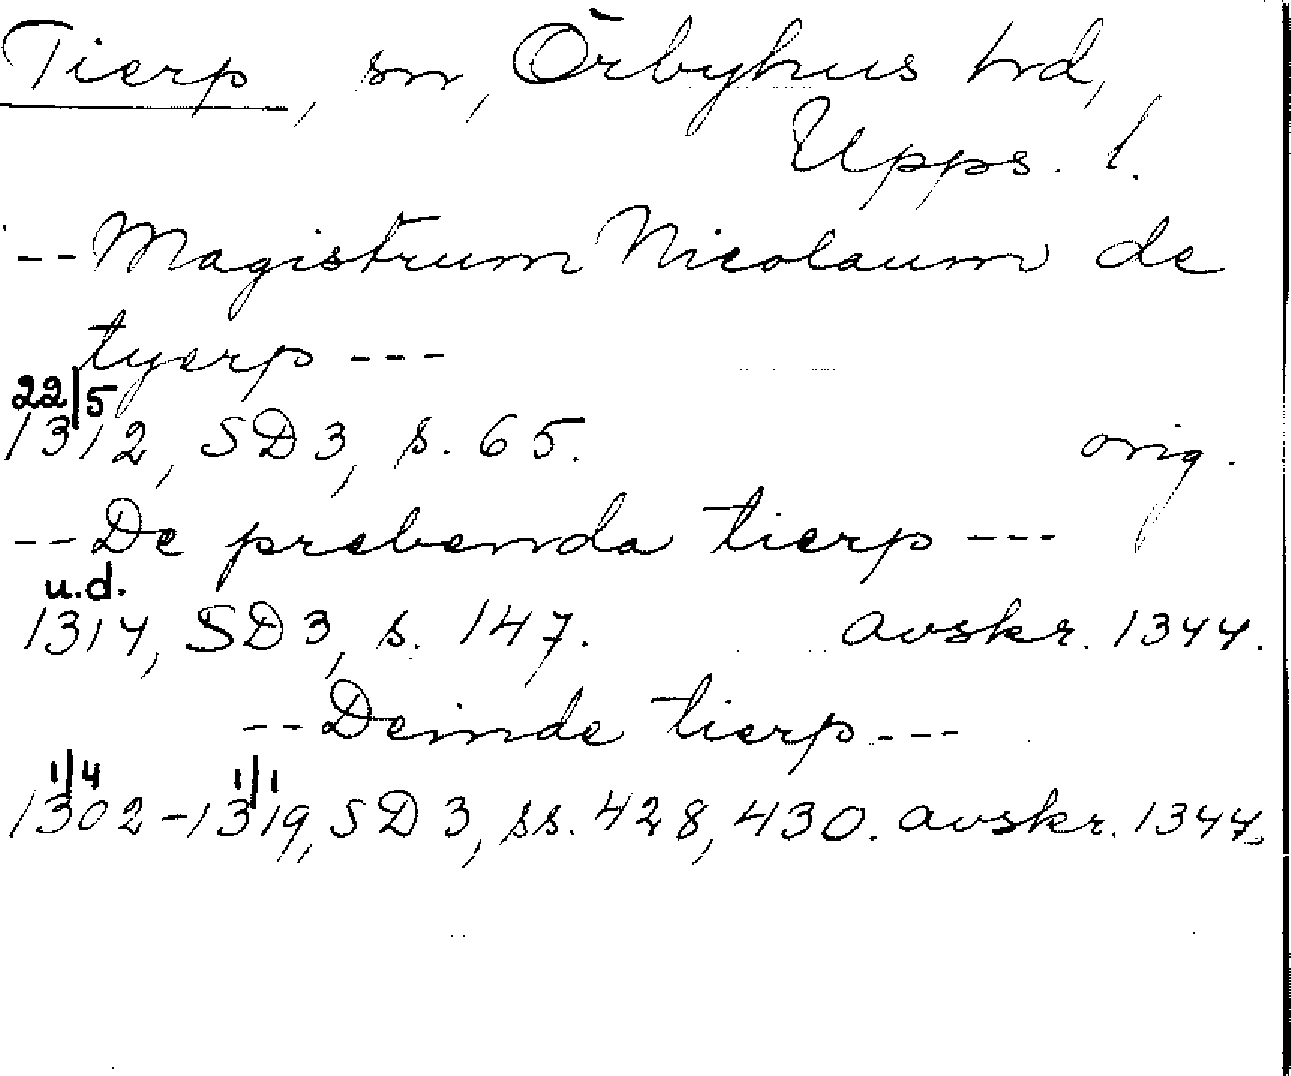 Tierp, sn, Örbyhus hd,
Upps. l.
-- Magistrum Nicolaum de
tyerp ---
22/5
1312, SD 3, s. 65. orig.
-- De prebenda tierp ---
u.d.
1314, SD 3, s. 147. avskr. 1344.
-- Deinde tierp ---
1/4 1/1
1302-1319, SD 3, ss. 428, 430. avskr. 1344.